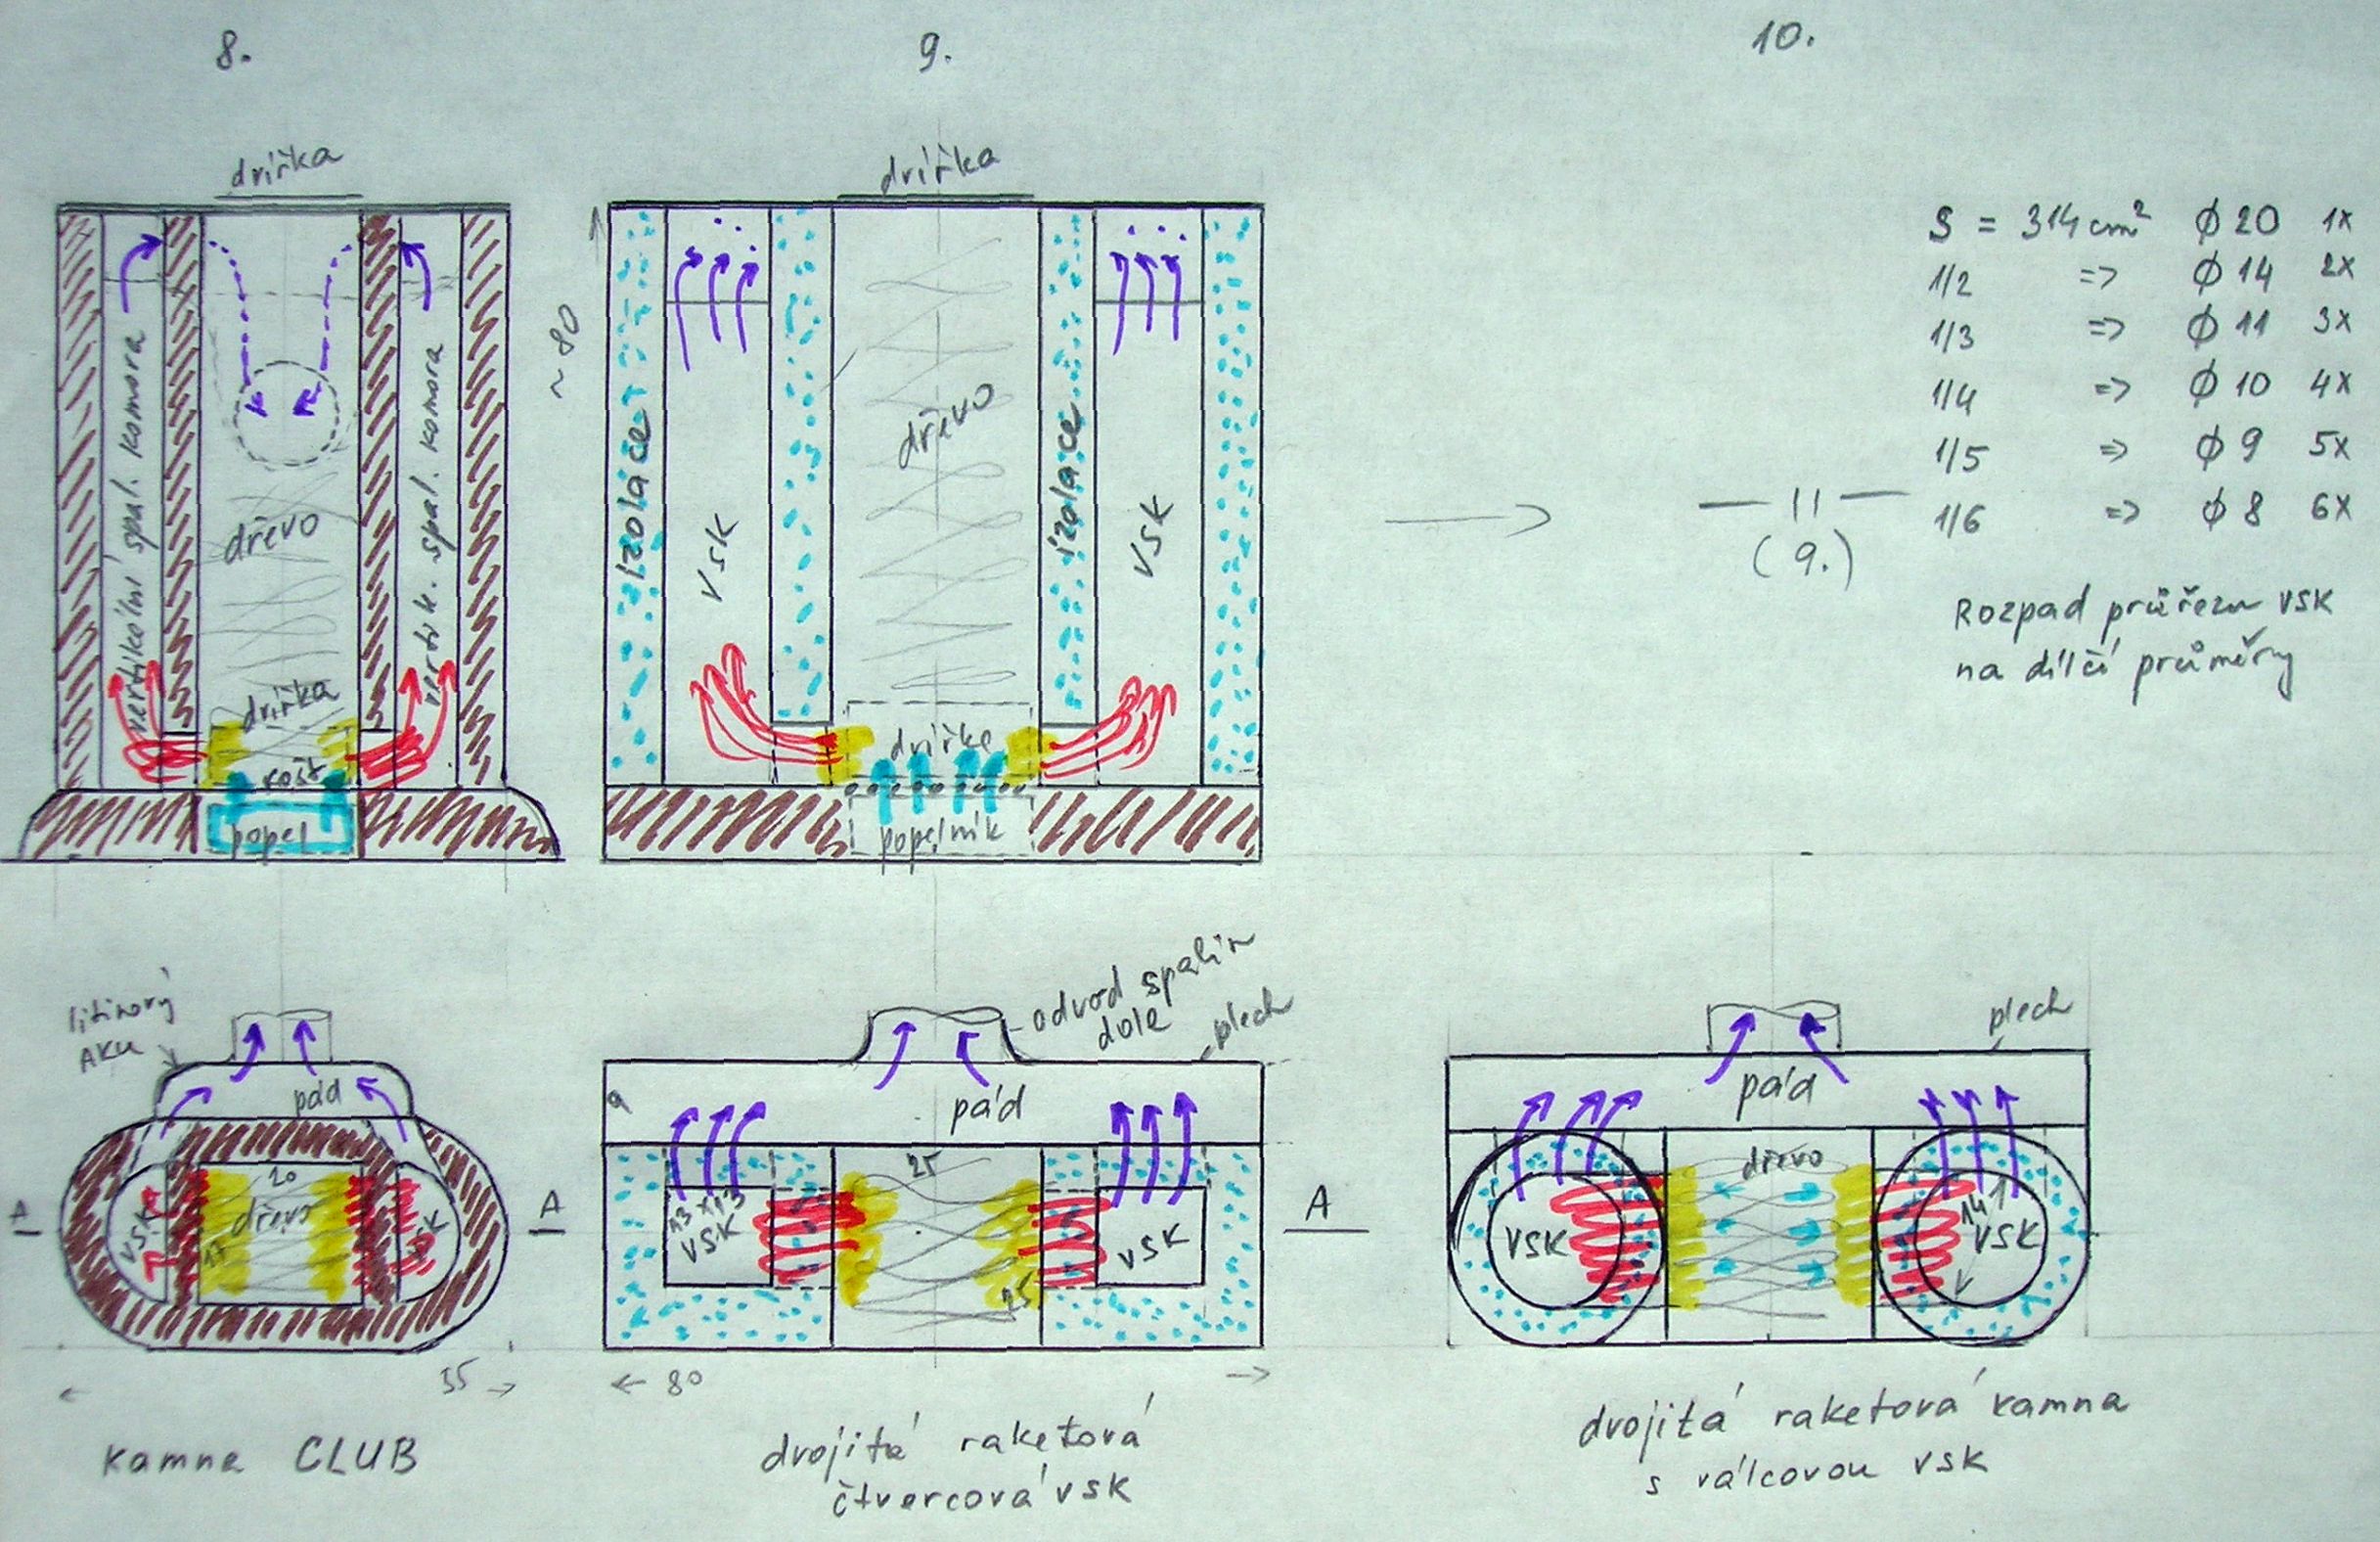 8.
dvířka
vertikální spal. komora
vertik. spal. komora
dřevo
dvířka
rošt
popel
9.
dvířka
~ 80
izolace
VSK
dřevo
izolace
VSK
dvířka
popelník
10.
— 11 —
(9.)
S = 314 cm² ϕ 20 1x
1/2 => ϕ 14 2x
1/3 => ϕ 11 3x
1/4 => ϕ 10 4x
1/5 => ϕ 9 5x
1/6 => ϕ 8 6x
Rozpad průřezu VSK
na dílčí průměry
litinový
AKU
pád
A
VSK
20
dřevo
17
VSK
A
55
kamna CLUB
odvod spalin
dole
plech
9
pád
13 x 13
VSK
25
25
VSK
A
80
dvojitá raketová
čtvercová VSK
plech
pád
dřevo
VSK
14
VSK
dvojitá raketová kamna
s válcovou VSK